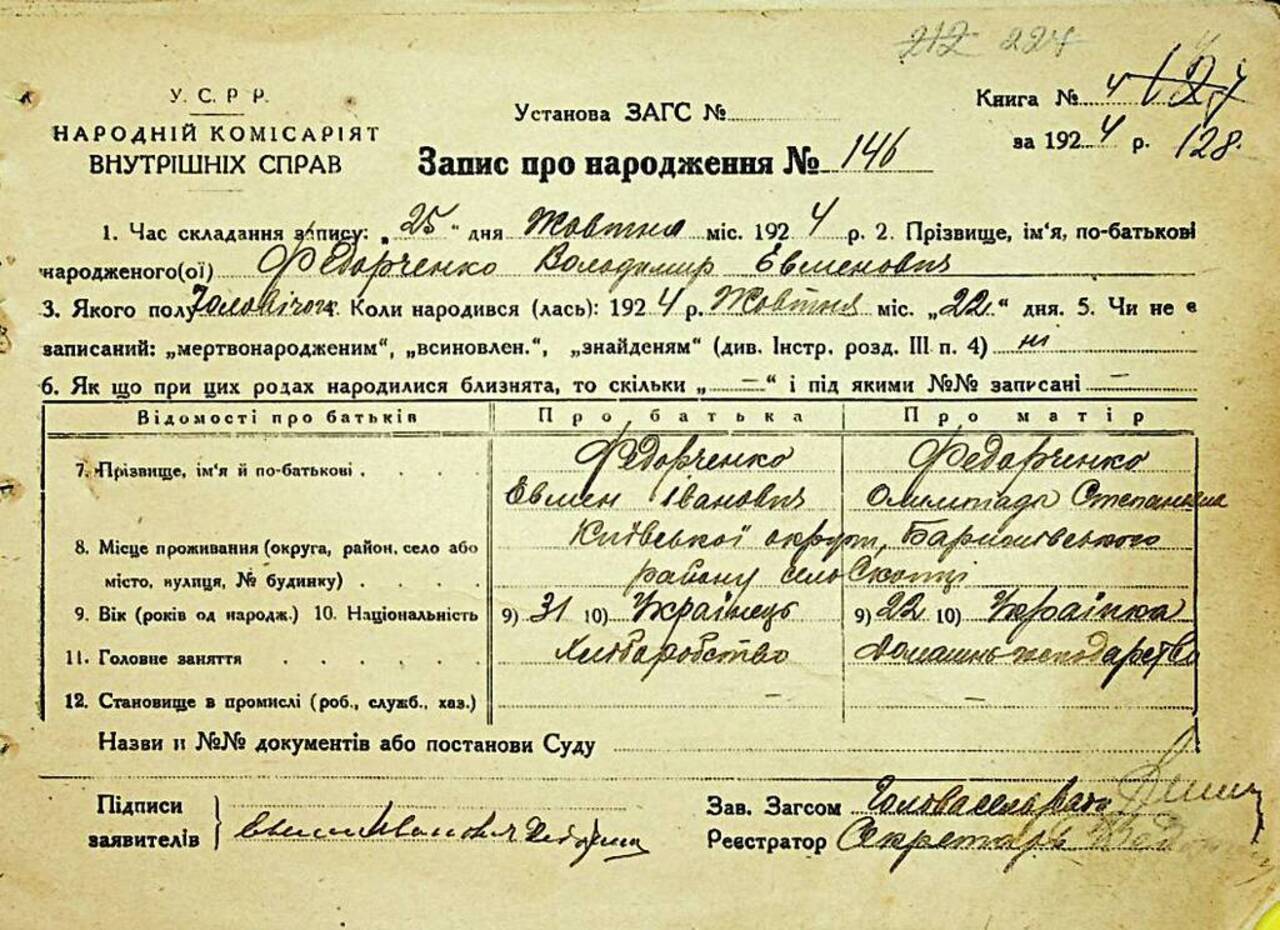 212 224
У. С. Р Р.
НАРОДНІЙ КОМІСАРІЯТ
ВНУТРІШНІХ СПРАВ
Установа ЗАГС №
Книга № 4 127
за 1924 р. 128.
Запис про народження № 146
1. Час складання запису: „25“ дня Жовтня міс. 1924 р. 2. Прізвище, ім'я, по-батькові
народженого(ої) Федорченко Володимир Евменович
3. Якого полу Чоловічог. Коли народився (лась): 1924 р. Жовтня міс. „22“ дня. 5. Чи не є
записаний: „мертвонародженим“, „всиновлен.“, „знайденям“ (див. Інстр. розд. III п. 4) ні
6. Як що при цих родах народилися близнята, то скільки „ — “ і під якими №№ записані —
Відомості про батьків Про батька Про матір
7. Прізвище, ім'я й по-батькові . . . . Федорченко Федорченко
Евмен Іванович Олимпада Степановна
8. Місце проживання (округа, район, село або Київської округи, Баришівського
місто, вулиця, № будинку) . . . . району село Скопці
9. Вік (років од народж.) 10. Національність 9) 31 10) Українець 9) 22 10) Українка
11. Головне заняття . . . . . Хліборобство Домашнь господарство
12. Становище в промислі (роб., служб., хаз.) — —
Назви и №№ документів або постанови Суду
Підписи
заявителів
Иванович
Зав. Загсом Голова сельради
Реєстратор Секретарь